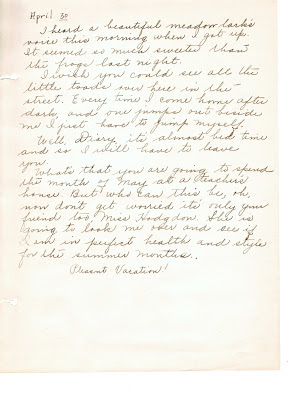 April 30
I heard a beautiful meadow lark's
voice this morning when I got up.
It seemed so much sweeter than
the frogs last night.
I wish you could see all the
little toads over here in the
street. Every time I come home after
dark and one jumps out beside
me I just have to jump myself.
Well, Diary, it's almost bed time
and so I will have to leave
you.
Whats that you are going to spend
the month of May at a teacher's
house. But who can this be, oh,
now don't get worried its only your
friend too Miss Hodgdon. She is
going to look me over and see if
I am in perfect health and style
for the summer months.
Plesent Vacation!